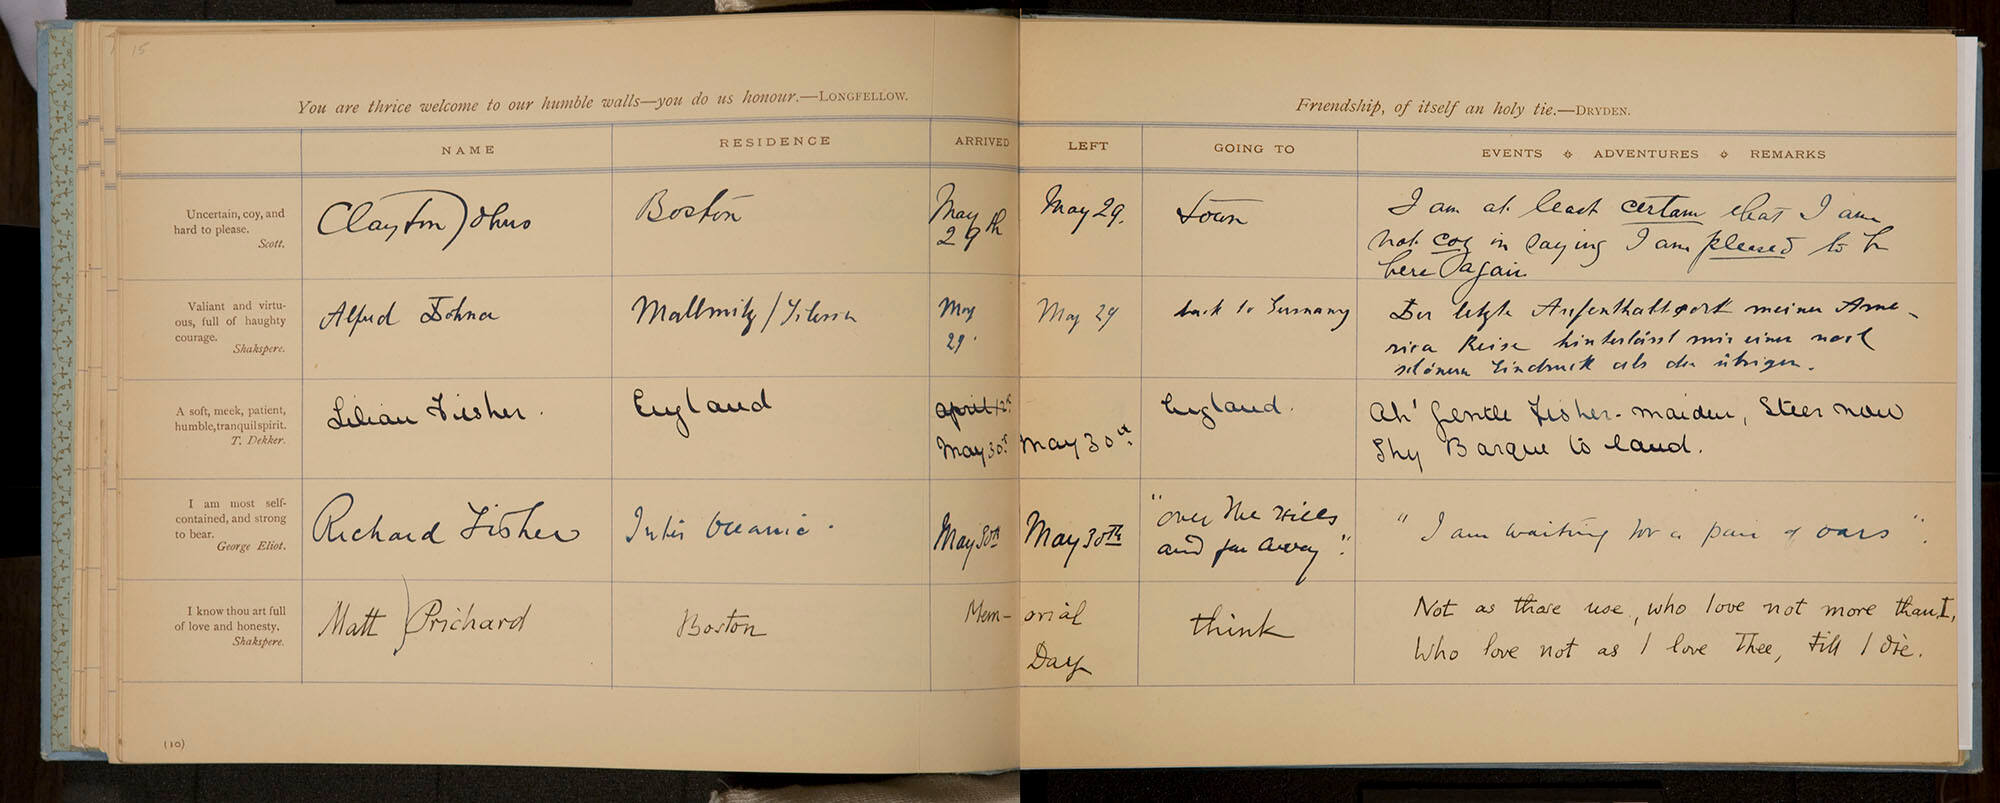 15
You are thrice welcome to our humble walls—you do us honour.—LONGFELLOW.
Friendship, of itself an holy tie.—DRYDEN.
NAME RESIDENCE ARRIVED LEFT GOING TO EVENTS ADVENTURES REMARKS
Uncertain, coy, and
hard to please.
Scott.
Clayton Johns
Boston
May
29th
May 29.
town
I am at least certain that I am
not coy in saying I am pleased to be
here again
Valiant and virtu-
ous, full of haughty
courage.
Shakspere.
Alfred Dohna
Mallmitz / Silesia
May
29.
May 29
back to Germany
Der letzte Aufenthaltsort meiner Ame-
rica Reise hinterlässt mir einen noch
schönern Eindruck als die übrigen.
A soft, meek, patient,
humble, tranquil spirit.
T. Dekker.
Lilian Fisher.
England
April 12th
May 30th
May 30th.
England.
Ah! gentle Fisher-maiden, Steer now
Thy Barque to land.
I am most self-
contained, and strong
to bear.
George Eliot.
Richard Fisher
Inter Oceanic.
May 30th
May 30th
"over the hills
and far away".
"I am waiting for a pair of oars".
I know thou art full
of love and honesty.
Shakspere.
Matt Prichard
Boston
Mem-
orial
Day
think
Not as those use, who love not more than I,
Who love not as I love Thee, till I die.
(10)